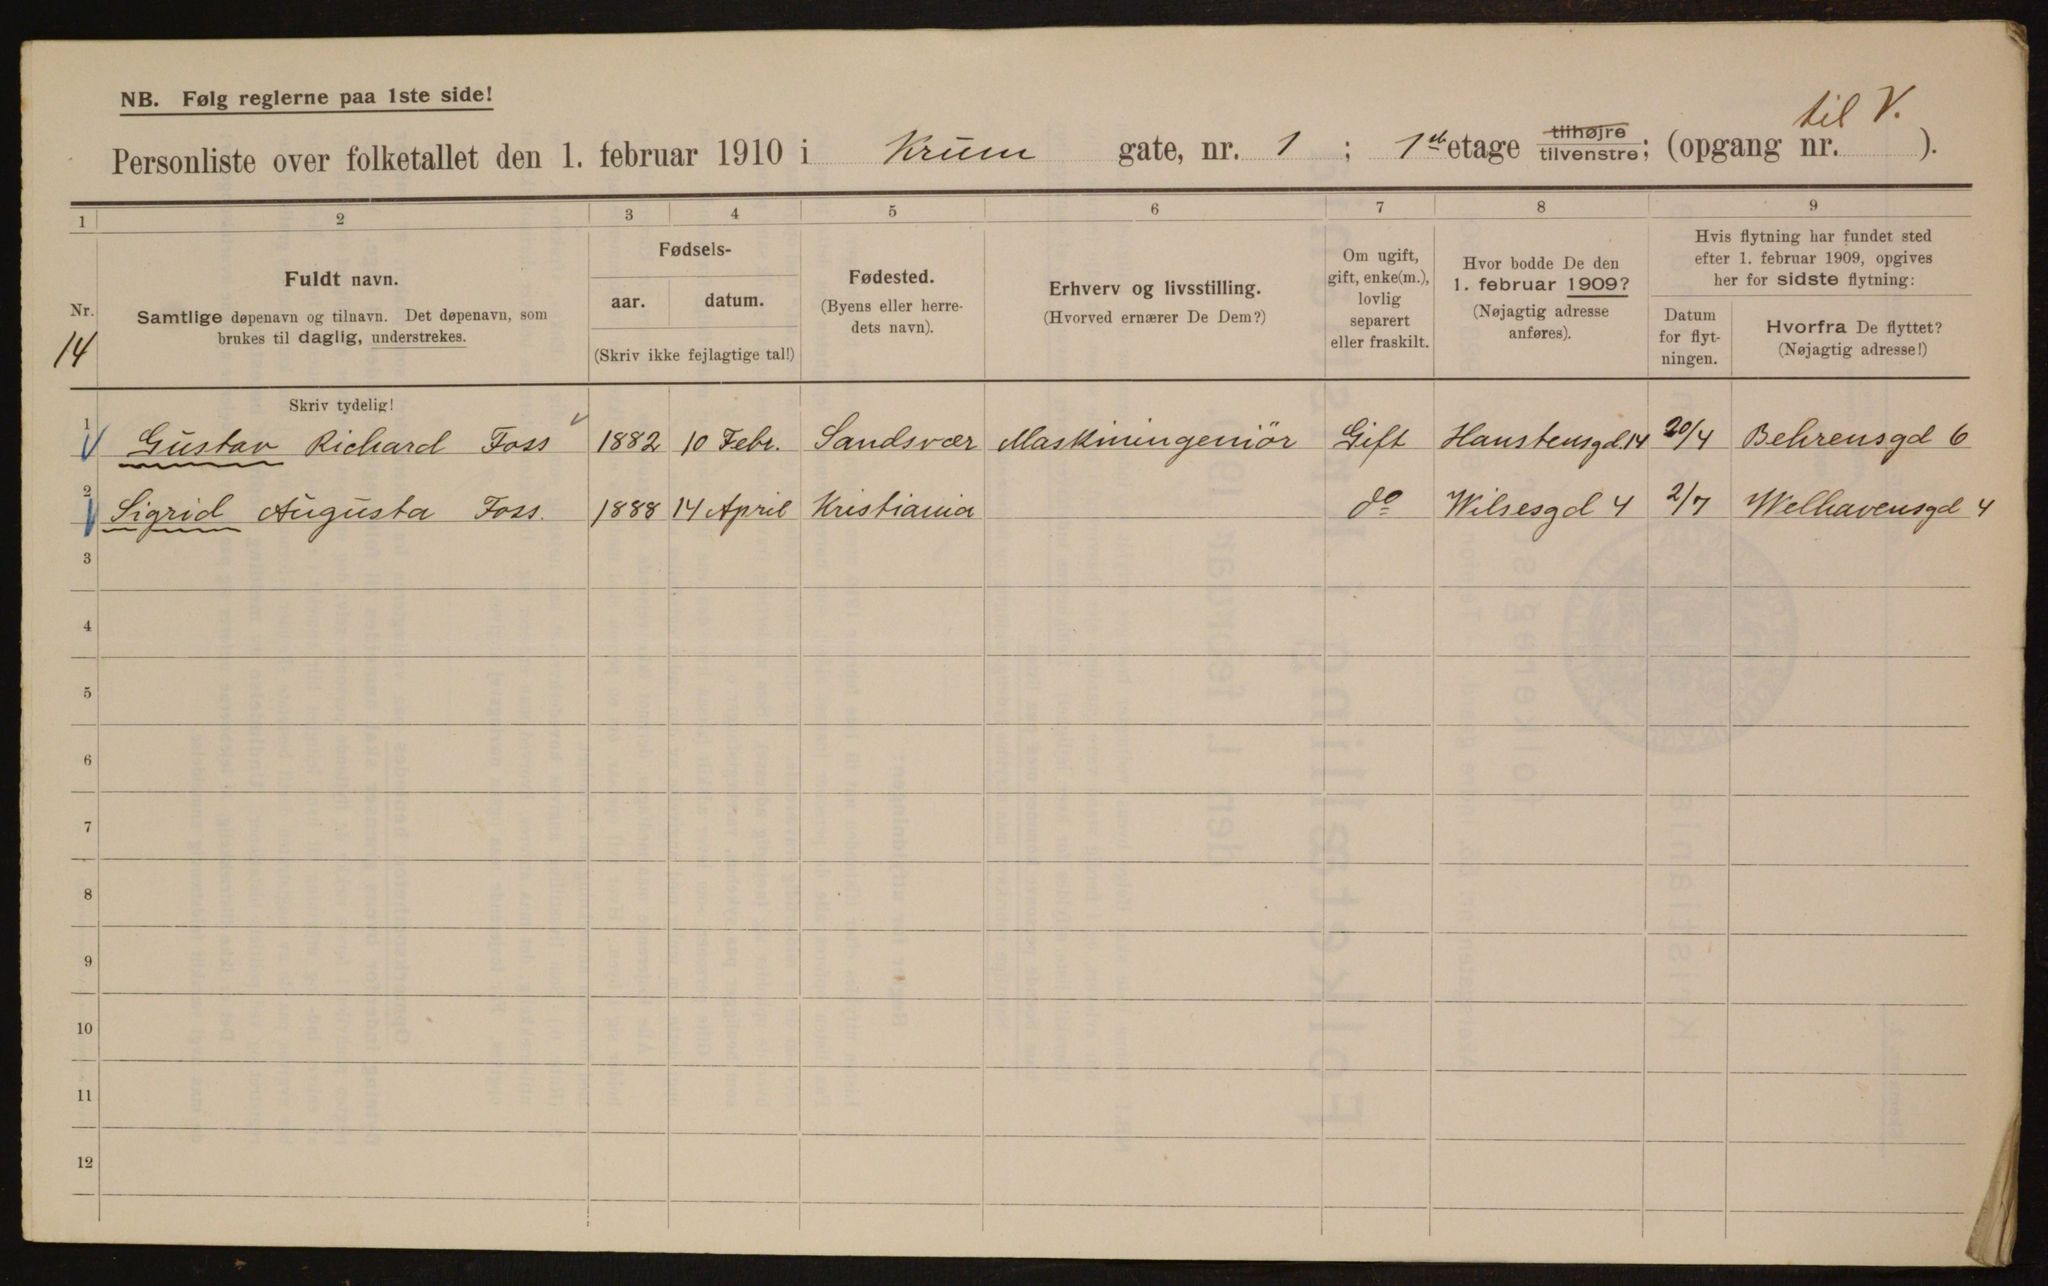 til V.
NB. Følg reglerne paa 1ste side!
Personliste over folketallet den 1. februar 1910 i Krum gate, nr. 1 ; 1ste etage tilhøjre tilvenstre; (opgang nr. ).
1 2 3 4 5 6 7 8 9
Nr.
14
Fuldt navn.
Samtlige døpenavn og tilnavn. Det døpenavn, som
brukes til daglig, understrekes.
Fødsels-
aar. datum.
(Skriv ikke fejlagtige tal!)
Fødested.
(Byens eller herre-
dets navn).
Erhverv og livsstilling.
(Hvorved ernærer De Dem?)
Om ugift,
gift, enke(m.),
lovlig
separert
eller fraskilt.
Hvor bodde De den
1. februar 1909?
(Nøjagtig adresse
anføres).
Hvis flytning har fundet sted
efter 1. februar 1909, opgives
her for sidste flytning:
Datum
for flyt-
ningen.
Hvorfra De flyttet?
(Nøjagtig adresse!)
Skriv tydelig!
1 Gustav Richard Foss 1882 10 Febr. Sandsvær Maskiningeniör Gift Hanstensgd. 14 20/4 Behrensgd 6
2 Sigrid Augusta Foss. 1888 14 April Kristiania do Wilsesgd 4 2/7 Welhavensgd 4
3
4
5
6
7
8
9
10
11
12